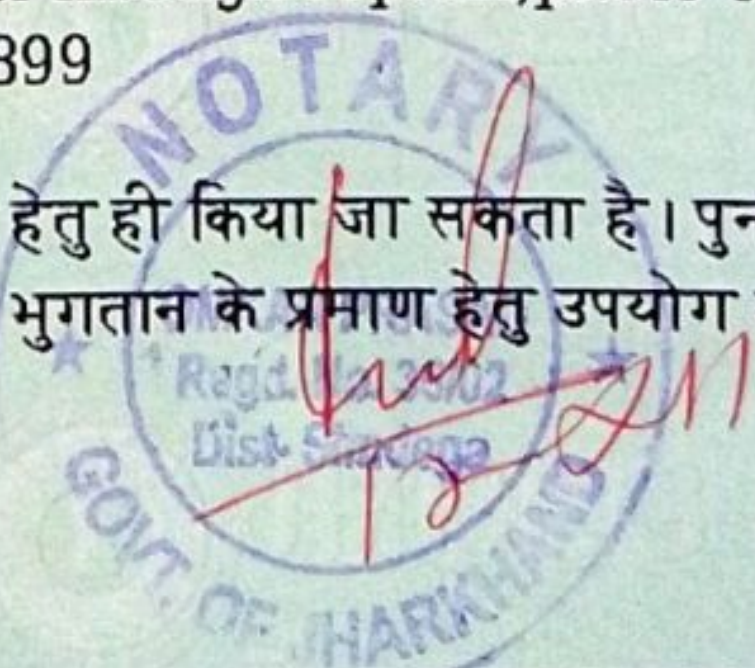 899
हेतु ही किया जा सकता है। पुन
भुगतान के प्रमाण हेतु उपयोग
NOTARY
Regd. No. 35/02
Dist- Simdega
GOVT. OF JHARKHAND